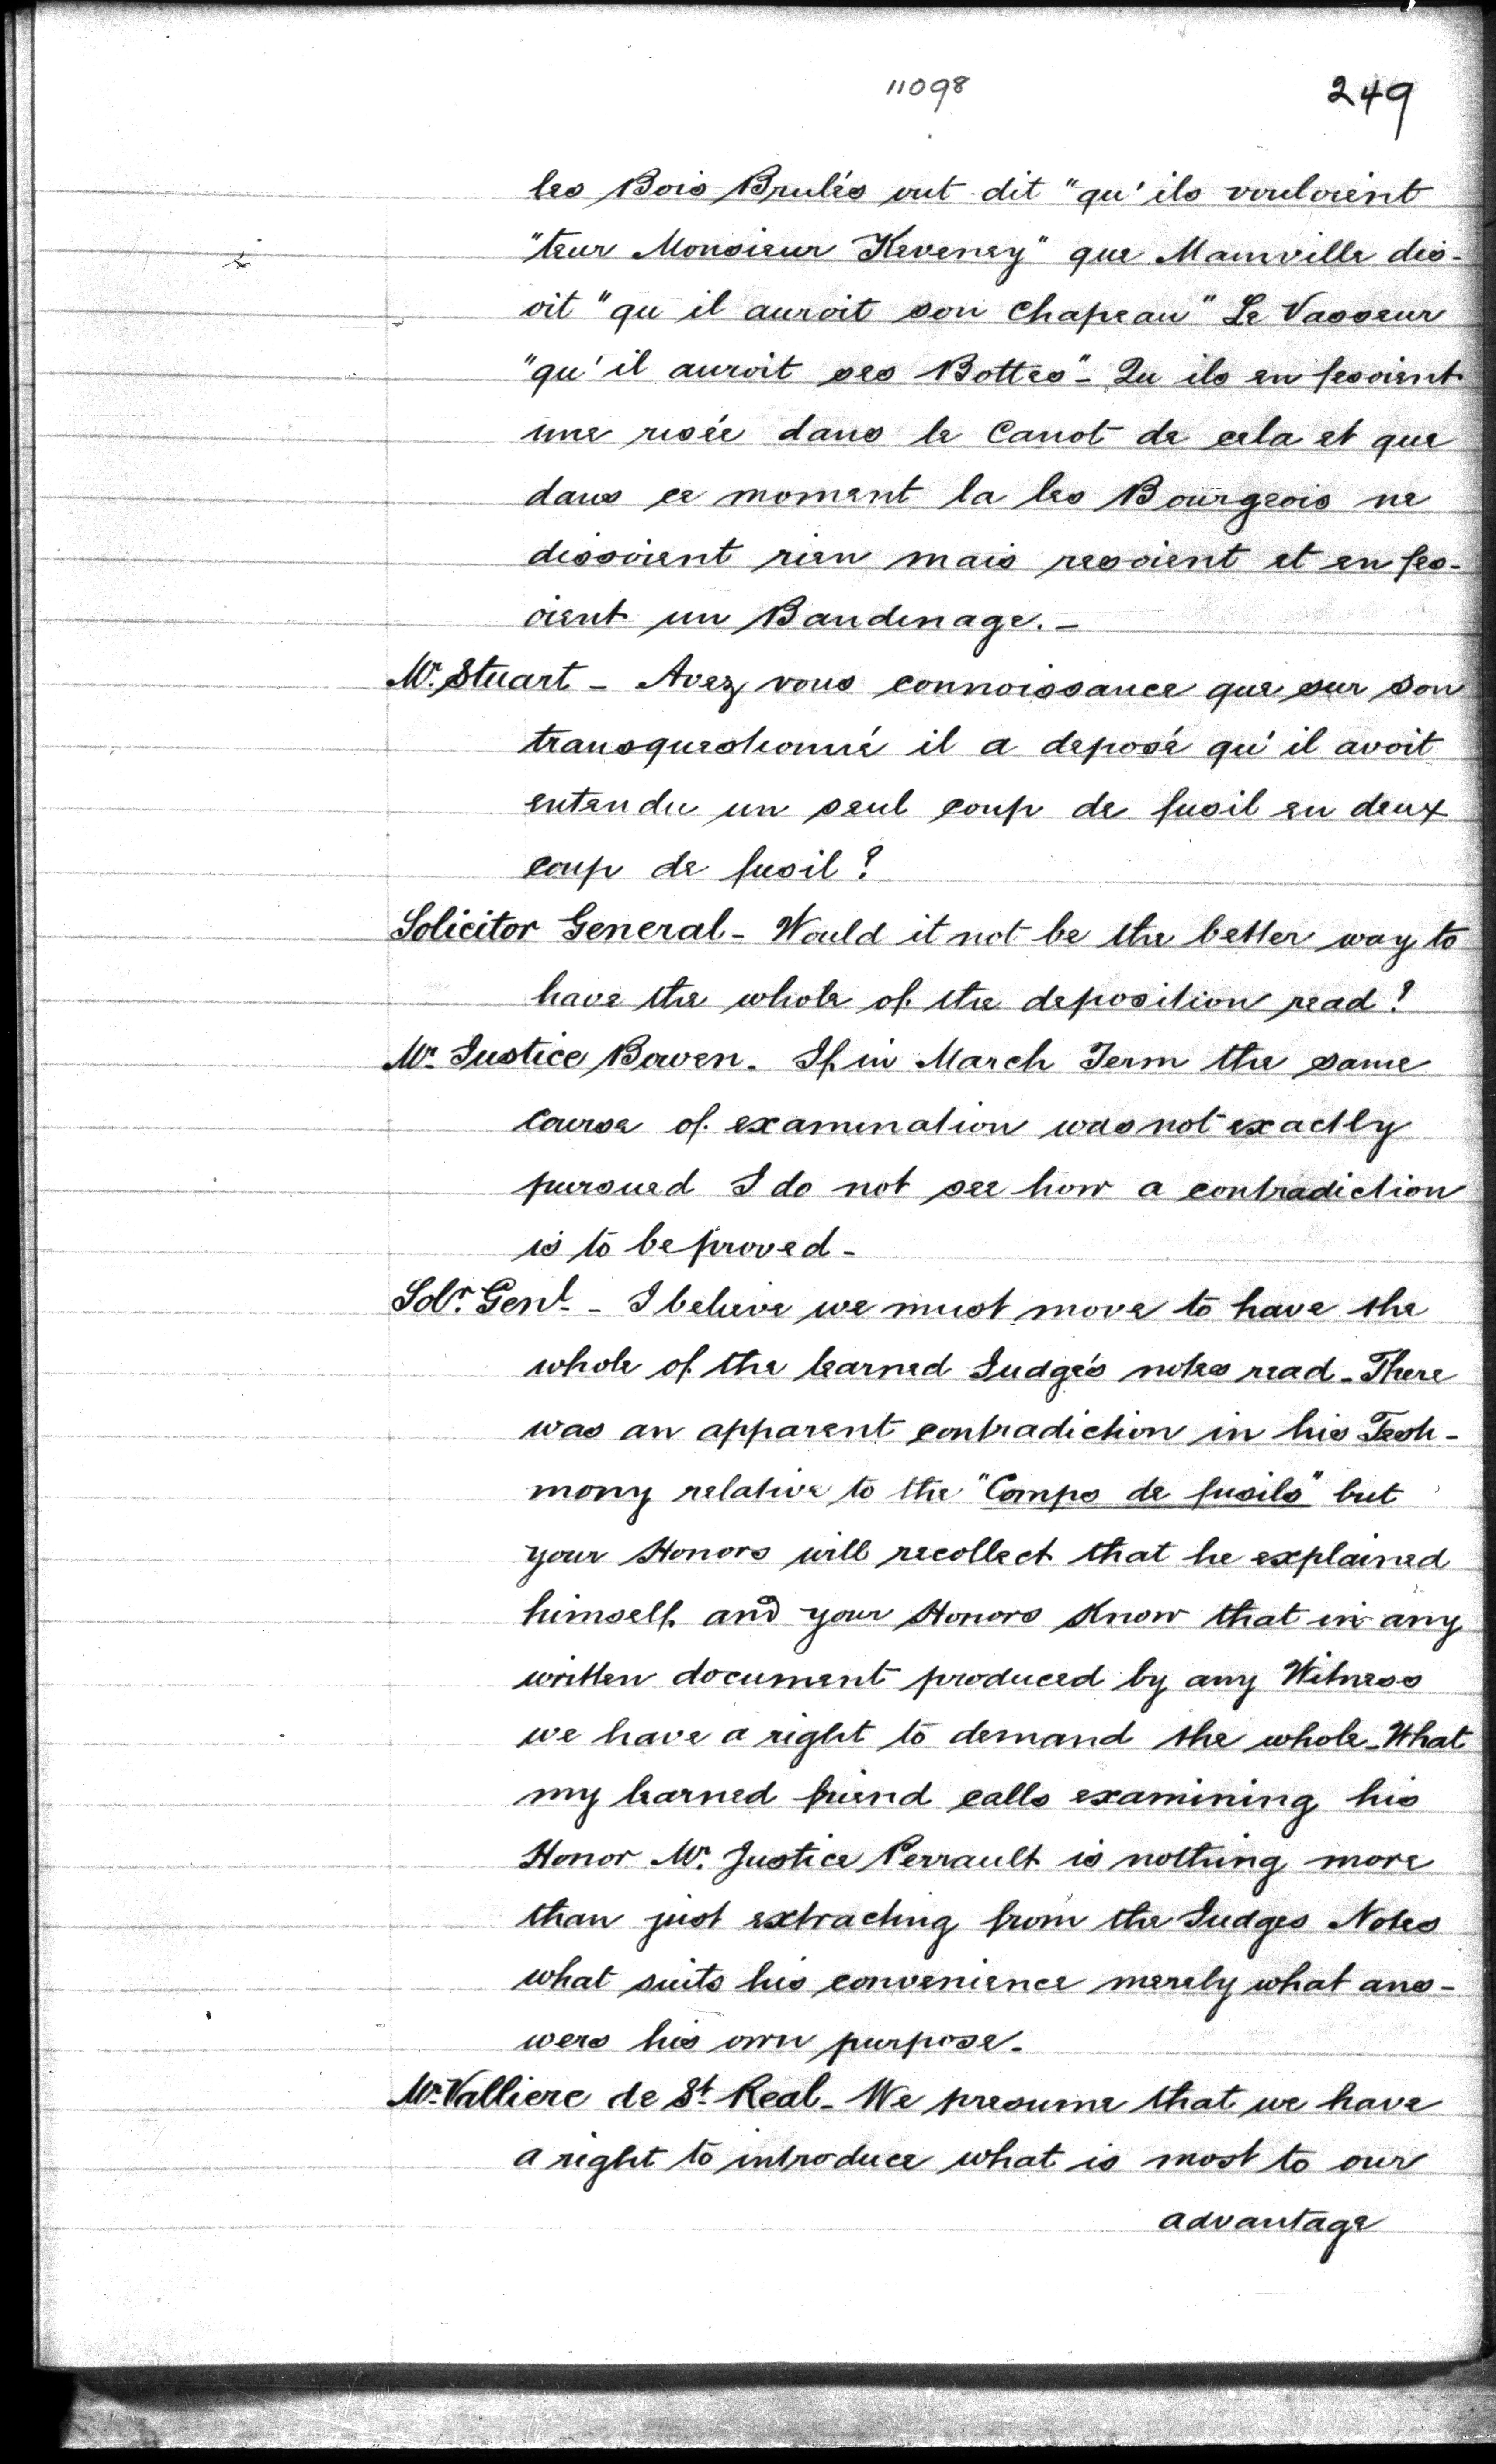 11098
249
les Bois Brulés ont dit "qu'ils vouloient
"teur Monsieur Keveney" que Mainville dis-
oit "qu il auroit son Chapeau" Le Vasseur
"qu'il auroit ses Bottes"- Qu ils en fesoient
une risée dans le Canot de cela et que
dans ce moment la les Bourgeois ne
dissoient rien mais resoient et en fes-
oient un Baudinage. -
Mr. Stuart - Avez vous connoissance que sur son
transquestionné il a deposé qu'il avoit
entendu un seul coup de fusil en deux
coup de fusil?
Solicitor General - Would it not be the better way to
have the whole of the deposition read?
Mr. Justice Bowen - If in March Term the same
course of examination was not exactly
pursued I do not see how a contradiction
is to be proved -
Solr. Genl. - I believe we must move to have the
whole of the learned Judge's notes read - There
was an apparent contradiction in his Testi-
mony relative to the "Comps de fusils" but
your Honors will recollect that he explained
himself and your Honors know that in any
written document produced by any Witness
we have a right to demand the whole - What
my learned friend calls examining his
Honor Mr. Justice Perrault is nothing more
than just extracting from the Judges Notes
what suits his convenience merely what ans-
wers his own purpose -
Mr. Valliere de St. Real - We presume that we have
a right to introduce what is most to our
advantage